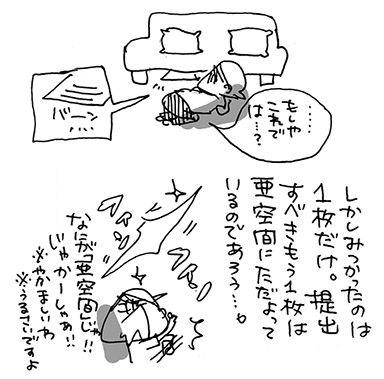 ……
もしや
これで
は…?
バーン
しかしみつかったのは
1枚だけ。提出
すべきもう1枚は
亜空間にただよって
いるのであろう…。
なにが「亜空間」じゃ!!
じゃかーしゃあ!!
※やかましいわ
※うるさいですよ